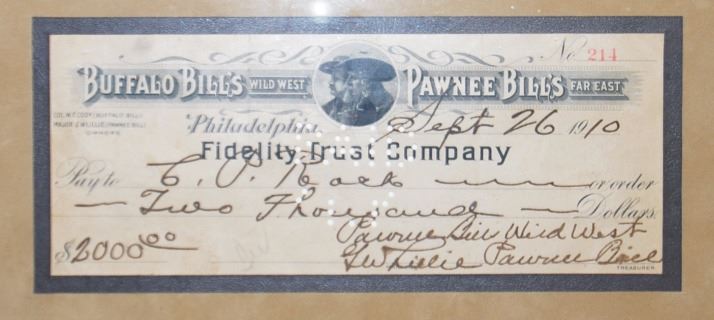 No 214
BUFFALO BILL'S WILD WEST PAWNEE BILL'S FAR EAST
COL. W.F. CODY (BUFFALO BILL)
MAJOR G.W. LILLIE (PAWNEE BILL)
OWNERS
Philadelphia, Sept 26 1910
Fidelity Trust Company
Pay to C. P. or order
Two Thousand Dollars
$2000.00 Pawnee Bill Wild West
G W Lillie Pawnee Bill
TREASURER